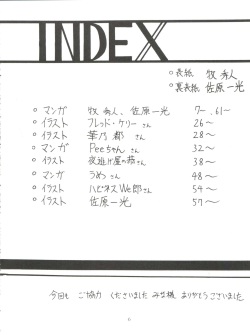 INDEX
○ 表紙 牧 秀人
○ 裏表紙 佐原一光
○ マンガ 牧 秀人、佐原一光 7〜, 61〜
○ イラスト フレッド・ケリー さん 26〜
○ イラスト 華乃 都 さん 28〜
○ マンガ Peeちゃん さん 32〜
○ イラスト 夜逃げ屋の茄さん 38〜
○ マンガ うめ さん 48〜
○ イラスト ハピネスWe郎さん 54〜
○ イラスト 佐原一光 57〜
今回も ご協力 くださいました みな様 ありがとうございました